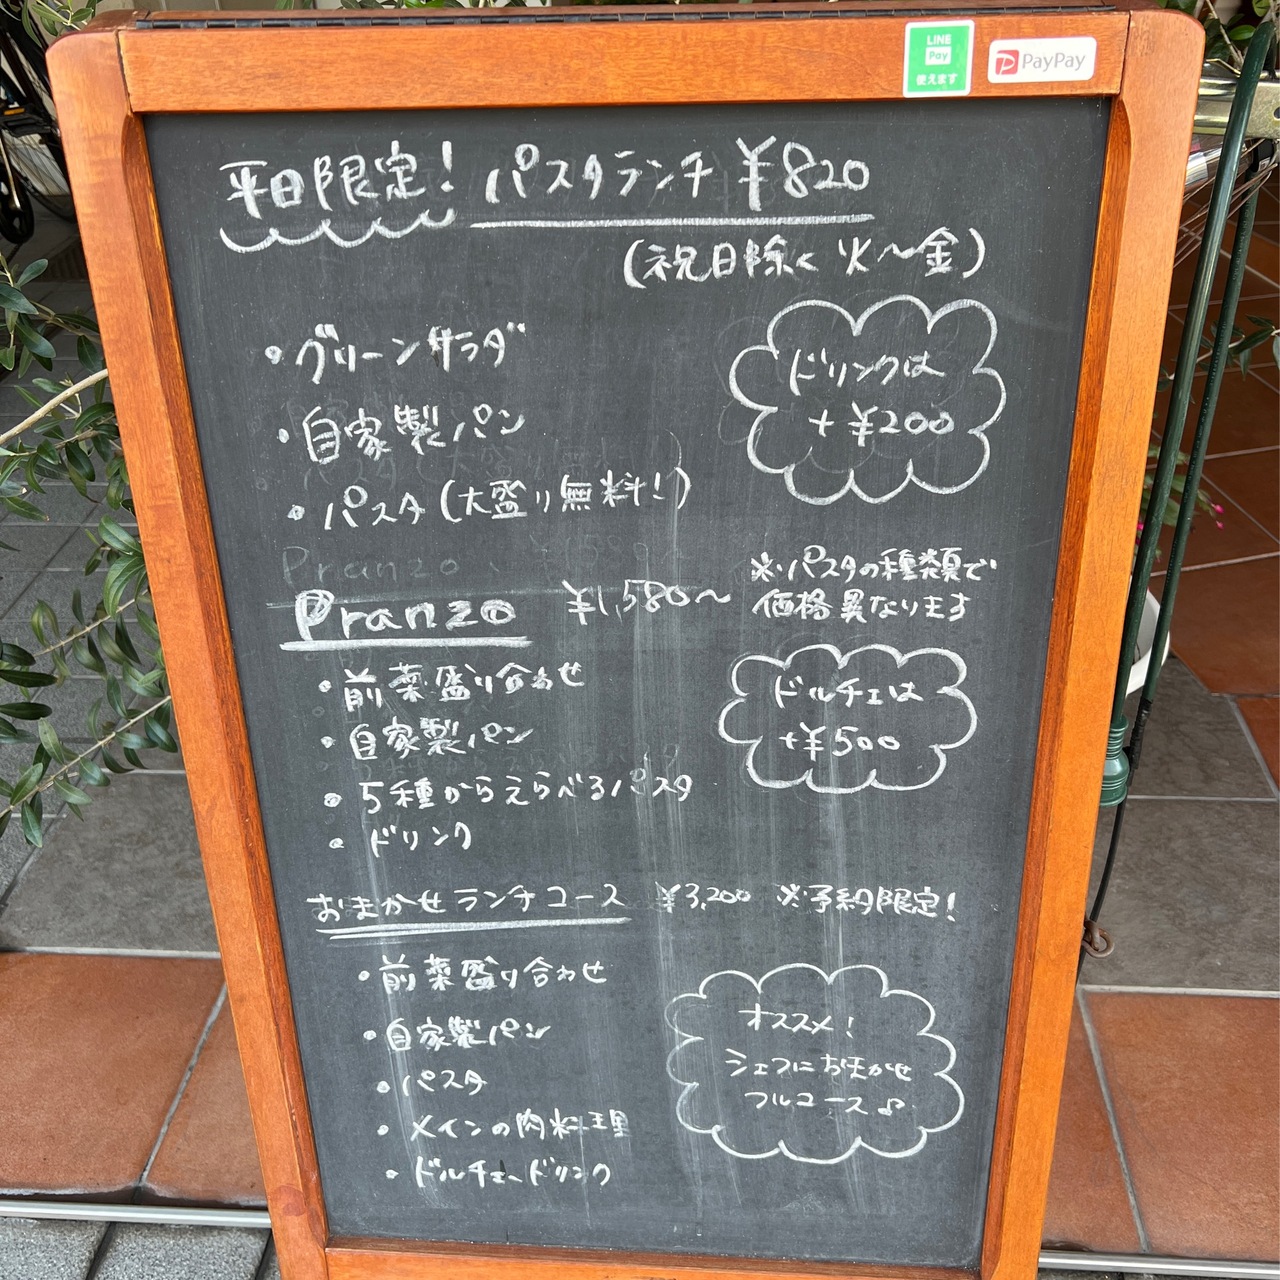 LINE
Pay
使えます
PayPay
平日限定! パスタランチ ¥820
(祝日除く 火〜金)
・グリーンサラダ
・自家製パン
・パスタ(大盛り無料!)
ドリンクは
+¥200
Pranzo
Pranzo ¥1,580〜
※パスタの種類で
価格異なります
・前菜盛り合わせ
・自家製パン
・5種からえらべるパスタ
・ドリンク
ドルチェは
+¥500
おまかせランチコース ¥3,200 ※予約限定!
・前菜盛り合わせ
・自家製パン
・パスタ
・メインの肉料理
・ドルチェ、ドリンク
オススメ!
シェフにおまかせ
フルコース♪